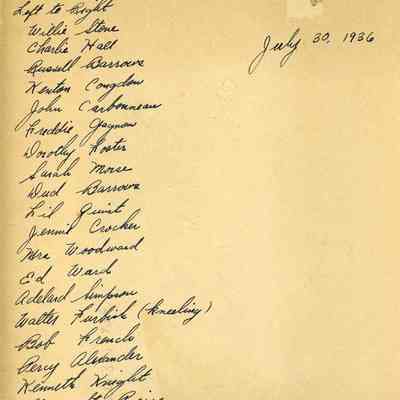 Left to Right
July 30, 1936
Willie Stone
Charlie Hall
Russell Barrows
Kenton Congdon
John Carbonneau
Freddie Gagnon
Dorothy Foster
Sarah Morse
Dud Barrows
Lil Quist
Jennie Crocker
Mrs Woodward
Ed Ward
Adelard Simpson
Walter Furbish (kneeling)
Bob French
Percy Alexander
Kenneth Knight